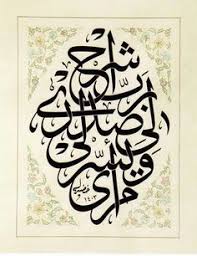 رب اشرح
لي صدري
ويسر لي
أمري
١٤٠٣